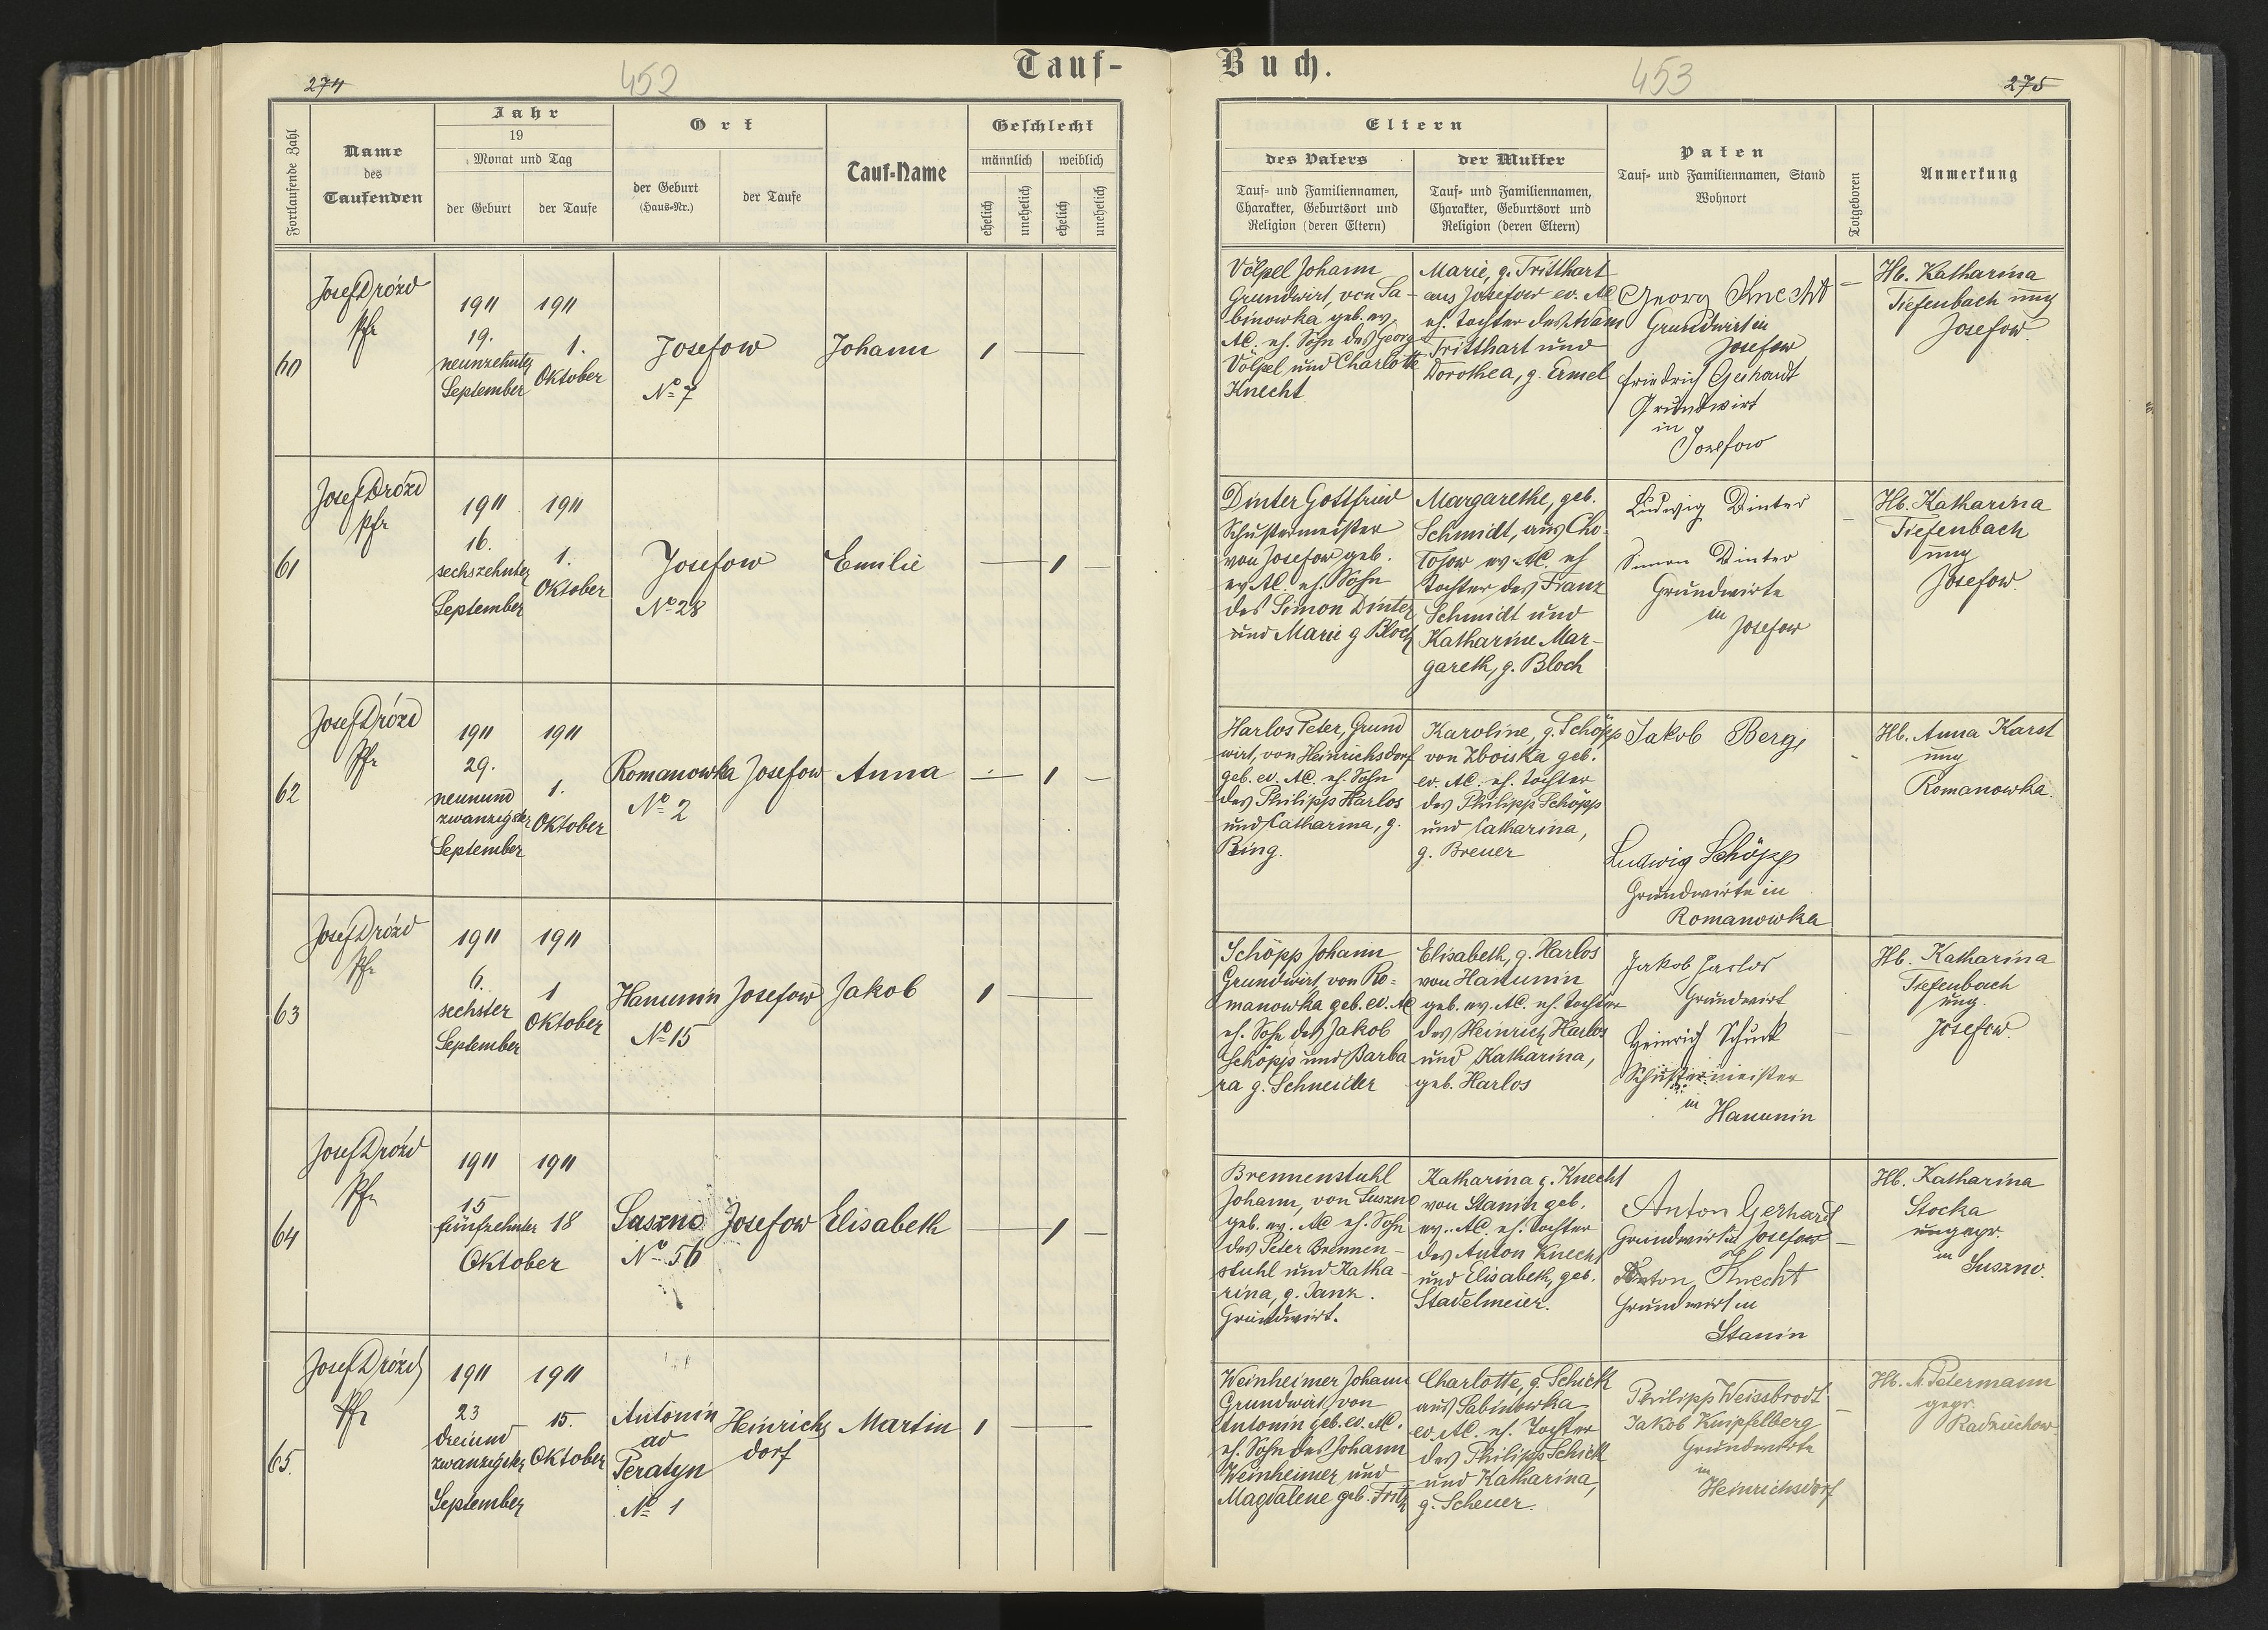 Tauf-
Buch.
274
452
453
275
Fortlaufende Zahl
Name
des
Taufenden
Jahr
19
Monat und Tag
der Geburt
der Taufe
Ort
der Geburt
(Haus-Nr.)
der Taufe
Tauf-Name
Geschlecht
männlich
weiblich
ehelich
unehelich
ehelich
unehelich
Eltern
des Vaters
Tauf- und Familiennamen,
Charakter, Geburtsort und
Religion (deren Eltern)
der Mutter
Tauf- und Familiennamen,
Charakter, Geburtsort und
Religion (deren Eltern)
Paten
Tauf- und Familiennamen, Stand
Wohnort
Totgeboren
Anmerkung
60
Josef Drózd
Pfr
1911
19.
neunzehnter
September
1911
1.
Oktober
Josefow
No 7
Johann
1
Völpel Johann
Grundwirt, von Sa-
binowka geb. ev.
AC. eh. Sohn des Georg
Völpel und Charlotte
Knecht
Marie, g. Tritthart
aus Josefow ev. AC
eh. Tochter des Adam
Tritthart und
Dorothea, g. Ermel
Georg Knecht
Grundwirt in
Josefow
Friedrich Gerhardt
Grundwirt
in
Josefow
Hb. Katharina
Tiefenbach ung
Josefow.
61
Josef Drózd
Pfr
1911
16.
sechszehnter
September
1911
1.
Oktober
Josefow
No 28
Emilie
1
Dinter Gottfried
Schustermeister
von Josefow geb.
ev AC. eh. Sohn
des Simon Dinter
und Marie g Bloch
Margarethe, geb.
Schmidt, aus Cho-
ev. AC. eh
Tochter des Franz
Schmidt und
Katharine Mar-
gareth, g. Bloch
Ludwig Dinter
Simon Dinter
Grundwirte
in
Josefow
Hb. Katharina
Tiefenbach
ung
Josefow.
62
Josef Drózd
Pfr
1911
29.
neunund
zwanzigster
September
1911
1.
Oktober
Romanowka
No 2
Josefow
Anna
1
Harlos Peter, Grund
wirt, von Heinrichsdorf
geb. ev. AC. eh. Sohn
des Philipp Harlos
und Catharina, g.
Bing.
Karoline, g. Schöpp
von Zboiska geb.
ev. AC. eh. Tochter
des Philipp Schöpp
und Catharina,
g. Breuer
Jakob Berg,
Ludwig Schöpp
Grundwirte in
Romanowka
Hb. Anna Karst
ung
Romanowka.
63
Josef Drózd
Pfr
1911
6.
sechster
September
1911
1
Oktober
Hanunin
No 15
Josefow
Jakob
1
Schöpp Johann
Grundwirt von Ro-
manowka geb. ev. AC
eh. Sohn des Jakob
Schöpp und Barba
ra g. Schneider
Elisabeth, g. Harlos
von Hanunin
geb. ev. AC. eh. Tochter
des Heinrich Harlos
und Katharina,
geb. Harlos
Jakob Harlos
Grundwirt
Heinrich Schunk
Schustermeister
in
Hanunin
Hb. Katharina
Tiefenbach
ung.
Josefow.
64
Josef Drózd
Pfr
1911
15
fünfzehnter
Oktober
1911
18
Suszno
No 56
Josefow
Elisabeth
1
Brennenstuhl
Johann, von Suszno
geb. ev. AC eh. Sohn
des Peter Brennen-
stuhl und Katha-
rina, g. Janz.
Grundwirt.
Katharina g. Knecht
von Stanin geb.
ev. AC. eh. Tochter
des Anton Knecht
und Elisabeth, geb.
Stadelmeier.
Anton Gerhard
Grundwirt in Josefow
Anton Knecht
Grundwirt in
Stanin
Hb. Katharina
Stocka
ungepr.
in
Suszno.
65.
Josef Drózd
Pfr
1911
23
dreiund
zwanzigster
September
1911
15.
Oktober
Antonin
ad
Peratyn
No 1
Heinrichs
dorf
Martin
1
Weinheimer Johann
Grundwirt, von
Antonin geb. ev. AC.
eh. Sohn des Johann
Weinheimer und
Magdalene geb. Fritz
Charlotte, g. Schick
aus Sabinowka
ev. AC. eh. Tochter
des Philipp Schick
und Katharina,
g. Scheuer.
Philipp Weissbrodt
Jakob Knipfelberg
Grundwirte
in
Heinrichsdorf
Hb. M. Petermann
gepr.
Radziechow